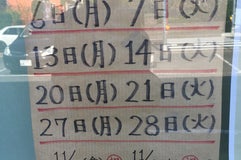 6日(月) 7日(火)
13日(月) 14日(火)
20日(月) 21日(火)
27日(月) 28日(火)
11/ 11/